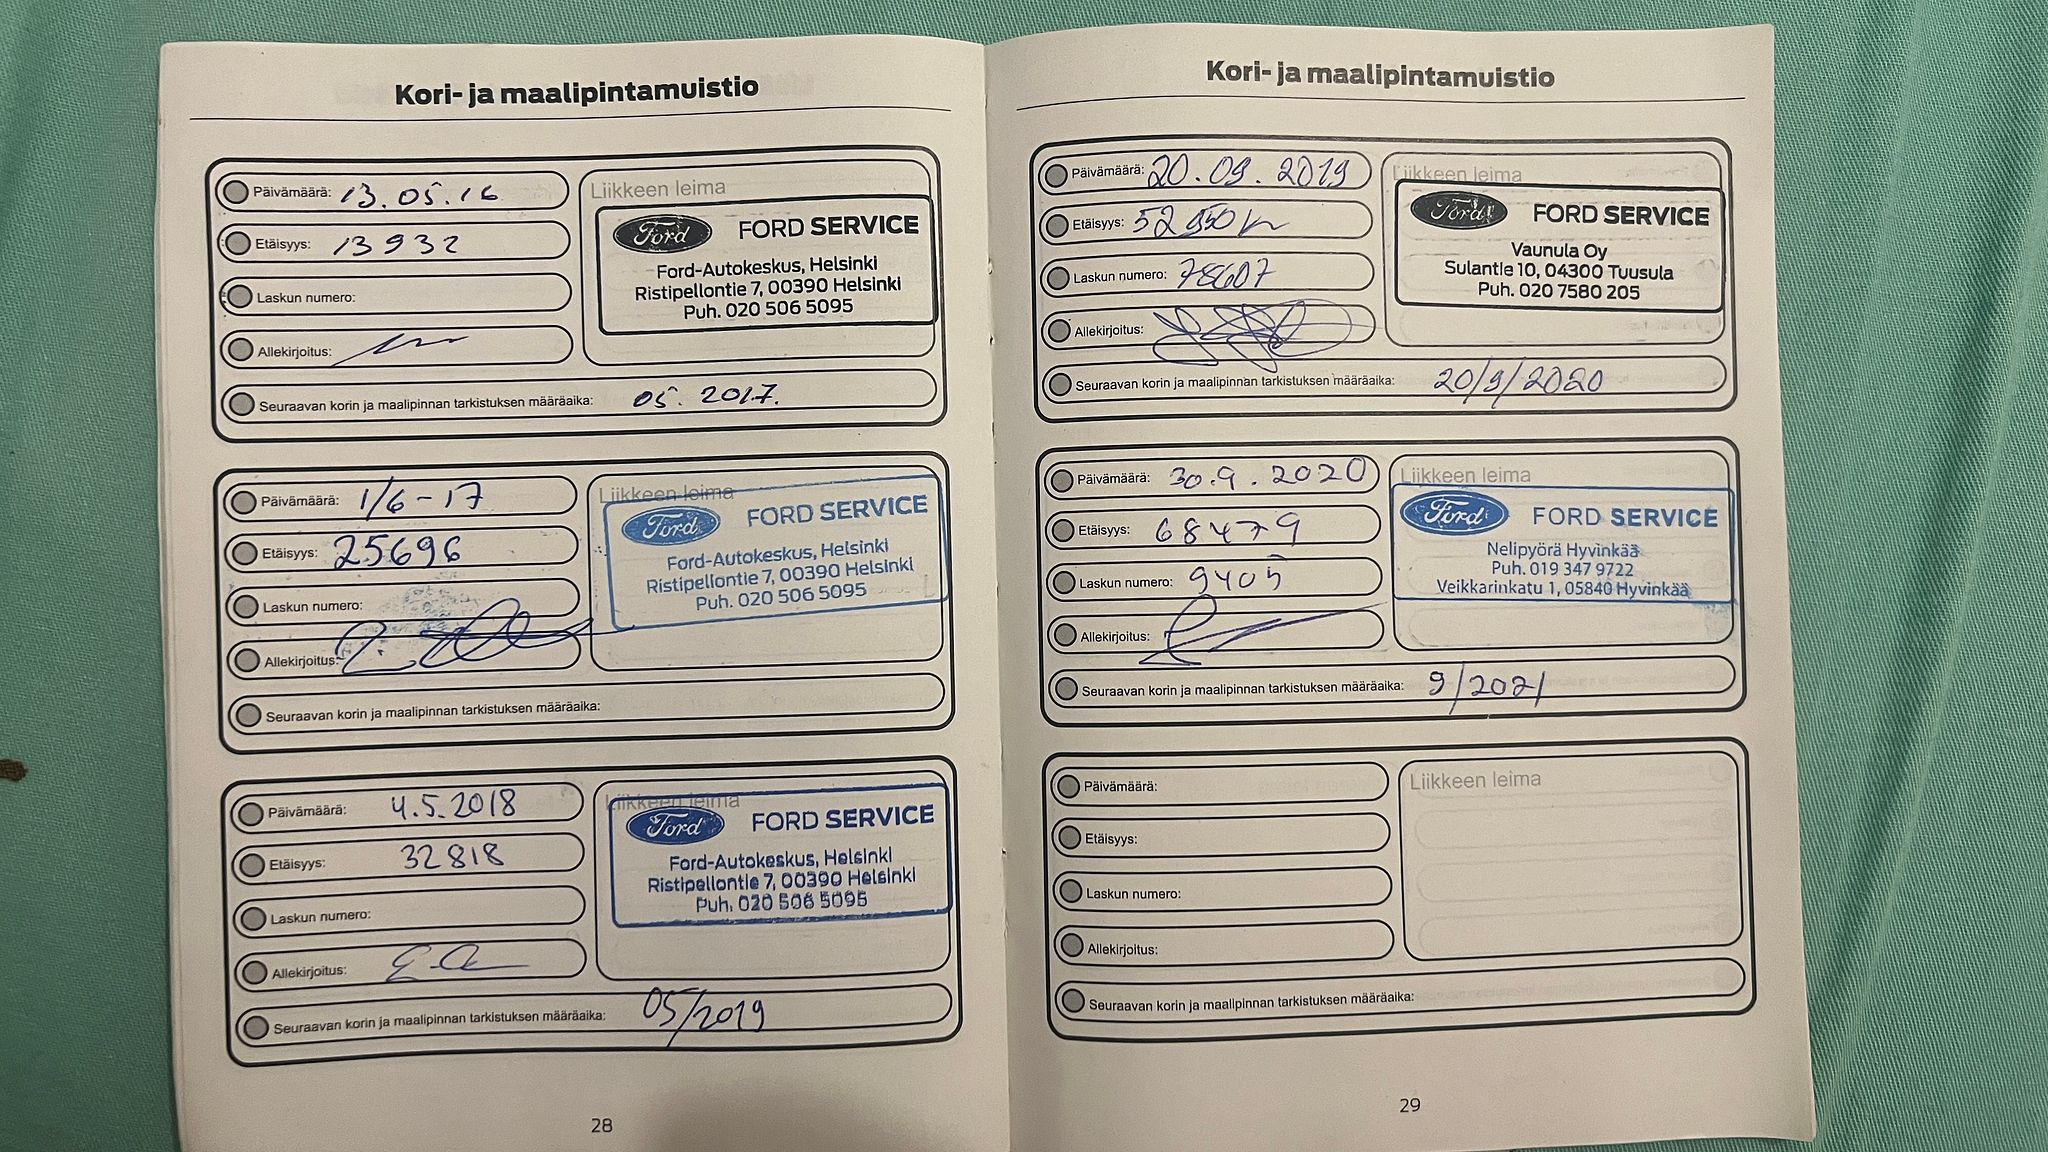 Kori- ja maalipintamuistio
Päivämäärä: 13.05.16
Etäisyys: 13932
Laskun numero:
Allekirjoitus:
Liikkeen leima
Ford FORD SERVICE
Ford-Autokeskus, Helsinki
Ristipellontie 7, 00390 Helsinki
Puh. 020 506 5095
Seuraavan korin ja maalipinnan tarkistuksen määräaika: 05. 2017.
Päivämäärä: 1/6-17
Etäisyys: 25696
Laskun numero:
Allekirjoitus:
Liikkeen leima
Ford FORD SERVICE
Ford-Autokeskus, Helsinki
Ristipellontie 7, 00390 Helsinki
Puh. 020 506 5095
Seuraavan korin ja maalipinnan tarkistuksen määräaika:
Päivämäärä: 4.5.2018
Etäisyys: 32818
Laskun numero:
Allekirjoitus:
Liikkeen leima
Ford FORD SERVICE
Ford-Autokeskus, Helsinki
Ristipellontie 7, 00390 Helsinki
Puh. 020 506 5095
Seuraavan korin ja maalipinnan tarkistuksen määräaika: 05/2019
28
Kori- ja maalipintamuistio
Päivämäärä: 20.09.2019
Etäisyys:
Laskun numero: 78607
Allekirjoitus:
Liikkeen leima
Ford FORD SERVICE
Vaunula Oy
Sulantie 10, 04300 Tuusula
Puh. 020 7580 205
Seuraavan korin ja maalipinnan tarkistuksen määräaika: 20/9/2020
Päivämäärä: 30.9.2020
Etäisyys: 68479
Laskun numero: 9405
Allekirjoitus:
Liikkeen leima
Ford FORD SERVICE
Nelipyörä Hyvinkää
Puh. 019 347 9722
Veikkarinkatu 1, 05840 Hyvinkää
Seuraavan korin ja maalipinnan tarkistuksen määräaika: 9/2021
Päivämäärä:
Etäisyys:
Laskun numero:
Allekirjoitus:
Liikkeen leima
Seuraavan korin ja maalipinnan tarkistuksen määräaika:
29